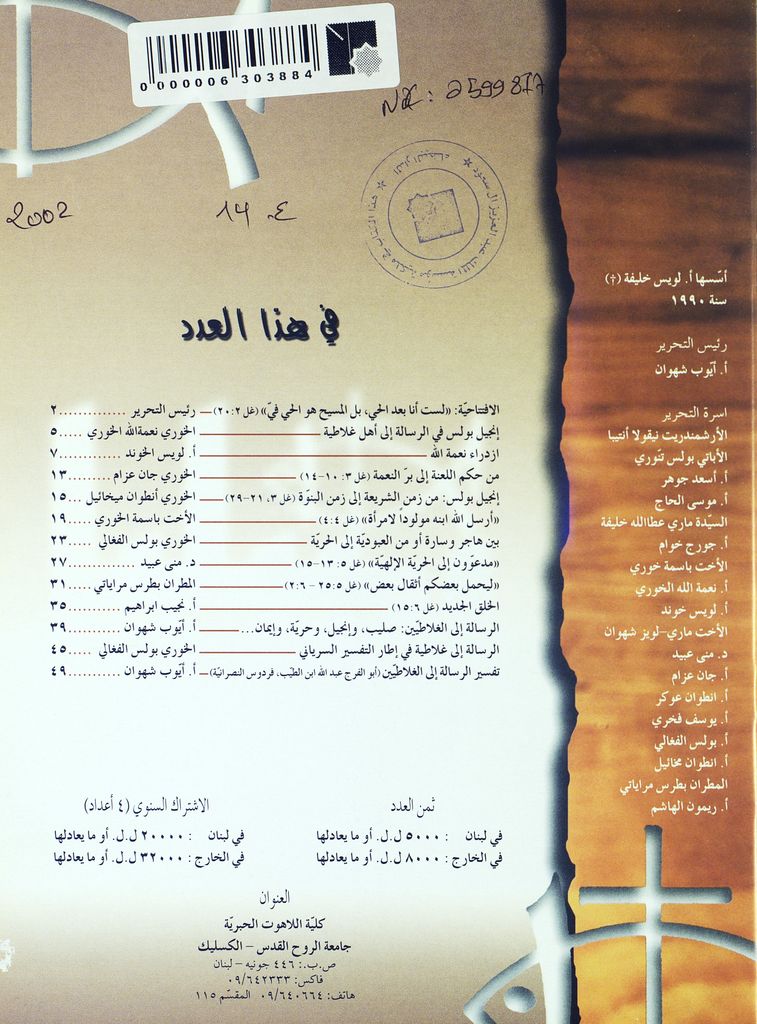 0 000006 303884
N° : 2599877
2002
14 ع
أسّسها أ. لويس خليفة (†)
سنة ١٩٩٠
رئيس التحرير
أ. أيّوب شهوان
اسرة التحرير
الأرشمندريت نيقولا أنتيبا
الأباتي بولس تنّوري
أ. أسعد جوهر
أ. موسى الحاج
السيّدة ماري عطاالله خليفة
أ. جورج خوام
الأخت باسمة خوري
أ. نعمة الله الخوري
أ. لويس خوند
الأخت ماري-لويز شهوان
د. منى عبيد
أ. جان عزام
أ. انطوان عوكر
أ. يوسف فخري
أ. بولس الفغالي
أ. انطوان مخائيل
المطران بطرس مراياتي
أ. ريمون الهاشم
في هذا العدد
الافتتاحيّة: «لست أنا بعد الحي، بل المسيح هو الحي فيّ» (غل ٢: ٢٠) رئيس التحرير ............. ٢
إنجيل بولس في الرسالة إلى أهل غلاطية الخوري نعمةالله الخوري ..... ٥
ازدراء نعمة الله أ. لويس الخوند ............ ٧
من حكم اللعنة إلى برّ النعمة (غل ٣: ١٠-١٤) الخوري جان عزام ......... ١٣
إنجيل بولس: من زمن الشريعة إلى زمن البنوّة (غل ٣، ٢١-٢٩) الخوري أنطوان ميخائيل ... ١٥
«أرسل الله ابنه مولوداً لامرأة» (غل ٤: ٤) الأخت باسمة الخوري ...... ١٩
بين هاجر وسارة أو من العبوديّة إلى الحريّة الخوري بولس الفغالي ..... ٢٣
«مدعوّون إلى الحريّة الإلهيّة» (غل ٥: ١٣-١٥) د. منى عبيد ............ ٢٧
«ليحمل بعضكم أثقال بعض» (غل ٥: ٢٥ - ٦: ٢) المطران بطرس مراياتي ..... ٣١
الخلق الجديد (غل ٦: ١٥) أ. نجيب ابراهيم .......... ٣٥
الرسالة إلى الغلاطيّين: صليب، وإنجيل، وحريّة، وإيمان... أ. أيّوب شهوان .......... ٣٩
الرسالة إلى غلاطية في إطار التفسير السرياني الخوري بولس الفغالي ..... ٤٥
تفسير الرسالة إلى الغلاطيّين (أبو الفرج عبد الله ابن الطيّب، فردوس النصرانيّة) أ. أيّوب شهوان .......... ٤٩
ثمن العدد
في لبنان : ٥٠٠٠ ل.ل. أو ما يعادلها
في الخارج : ٨٠٠٠ ل.ل. أو ما يعادلها
الاشتراك السنوي (٤ أعداد)
في لبنان : ٢٠٠٠٠ ل.ل. أو ما يعادلها
في الخارج : ٣٢٠٠٠ ل.ل. أو ما يعادلها
العنوان
كليّة اللاهوت الحبريّة
جامعة الروح القدس - الكسليك
ص.ب.: ٤٤٦ جونيه - لبنان
فاكس: ٠٩/٦٤٢٣٣٣
هاتف: ٠٩/٦٤٠٦٦٤ المقسّم ١١٥